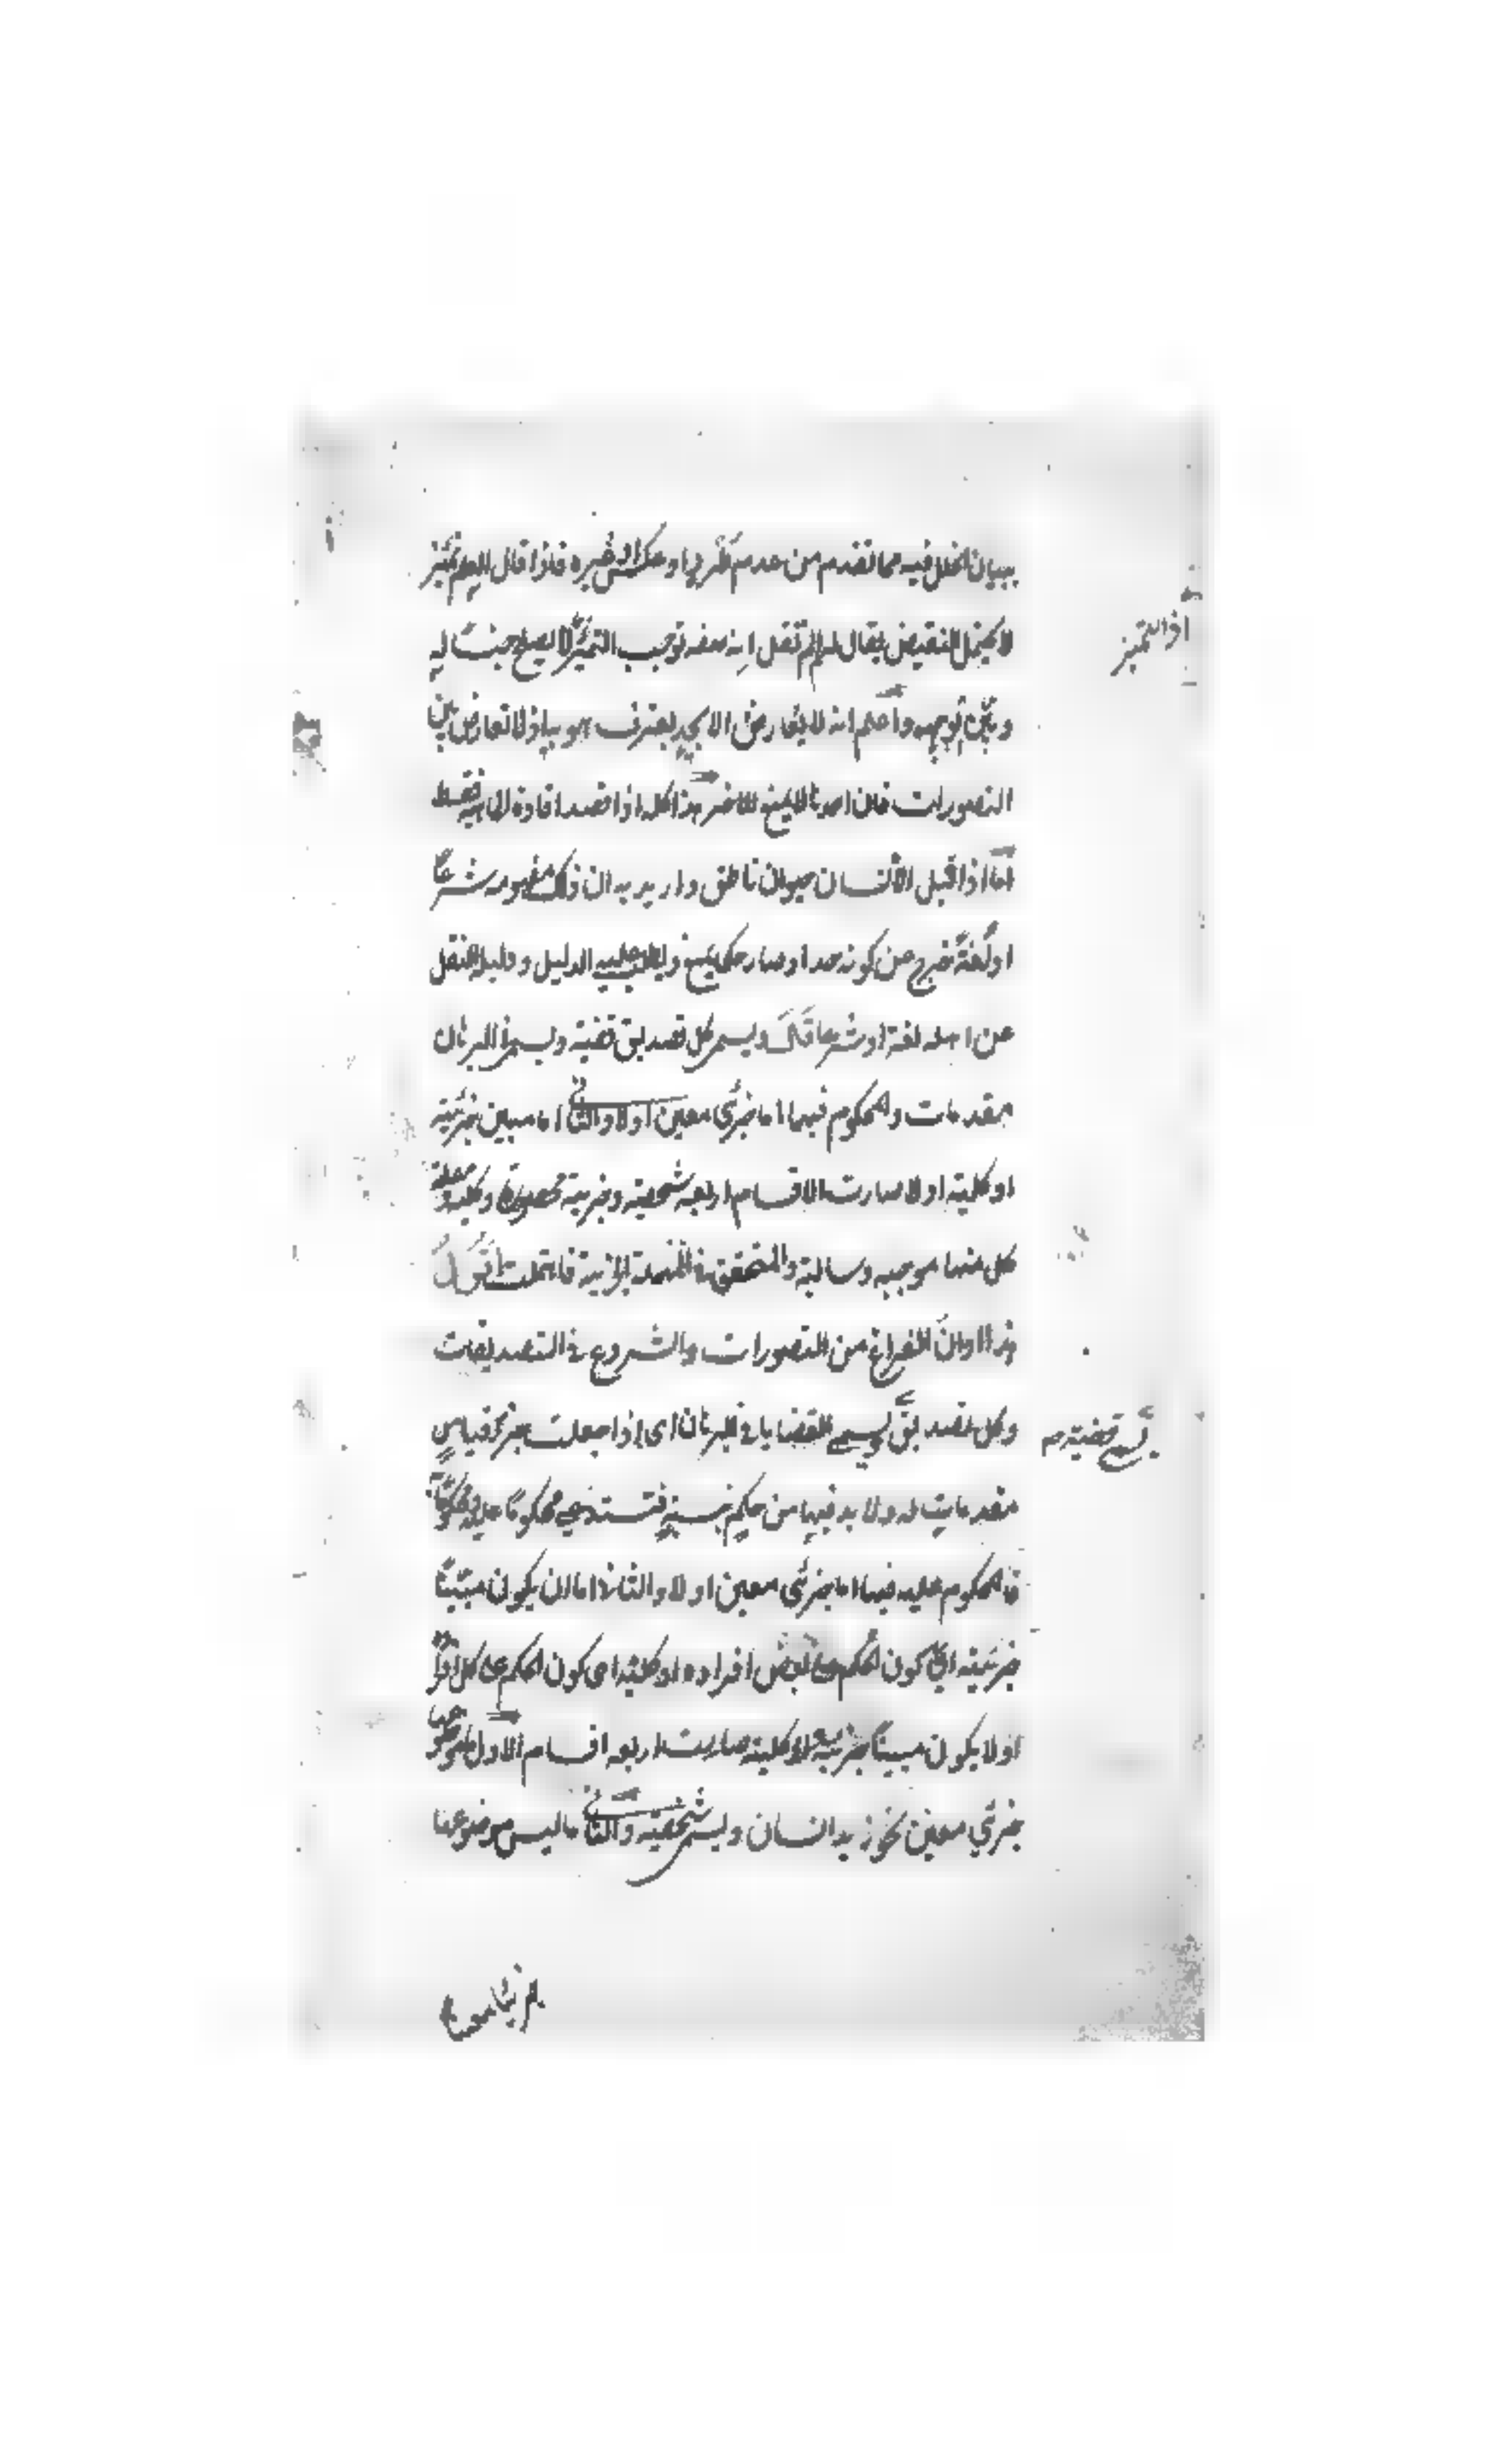 ببيان الخلل فيه مما تقدم من عدم طرد او عكس او غيره فاذا قال العلم تمييز
لا يحتمل النقيض يقال له لم تقل انه صفة توجب التمييز لا يصلح جنسا له
وبين توجيهه واعلم انه لا يعارض الا بحد يعترف هو به اذ لا تعارض بين
التصورات فان احدها لا يمنع الاخر هذا كله اذا قصد افادة الماهية فقط
اما اذا قيل الانسان حيوان ناطق واريد به ان ذلك مفهومه شرعا
او لغة خرج عن كونه حدا وصار حكما يمنع ويطلب عليه الدليل ودليله النقل
عن اهله لغة او شرعا قال ويسمى كل تصديق قضية ويسمى في البرهان
مقدمات والمحكوم فيها اما جزئي معين او لا والثاني اما مبين جزئيته
او كليته او لا صارت الاقسام اربعة شخصية وجزئية محصورة وكلية
كل منها موجبة وسالبة والمتحقق في المهملة الجزئية فاهملت اقول
هذا اوان الفراغ من التصورات والشروع في التصديقات
وكل تصديق يسمى قضية
ويسمى القضايا في البرهان اى اذا جعلت جزء قياس
مقدمات له ولا بد فيها من حكم بنسبة فتستدعي محكوما عليه ومحكوما به
فالمحكوم عليه فيها اما جزئي معين او لا والثاني اما ان يكون مبينا
جزئيته اي كون الحكم على بعض افراده او كليته اى كون الحكم على كل افراده
او لا يكون مبينا جزئيته او كليته صارت اربعة اقسام الاول ما موضوعها
جزئي معين نحو زيد انسان ويسمى شخصية والثاني ما ليس موضوعها
جزئيا معينا
اذ التمييز